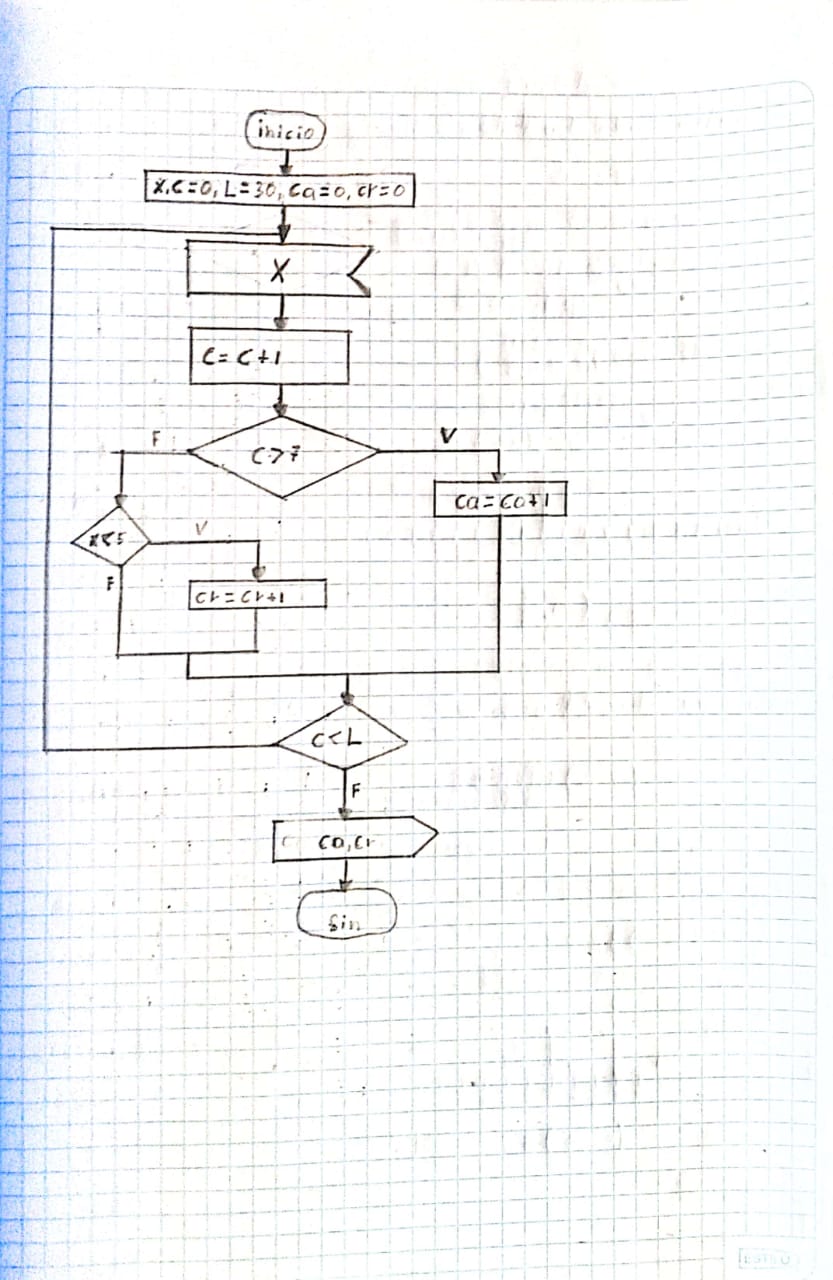 inicio
X,C=0, L=30, Ca=0, cr=0
X
C= C+1
F
C>7
V
Ca=Ca+1
x<5
V
F
Cr=Cr+1
C<L
F
Ca,Cr
fin